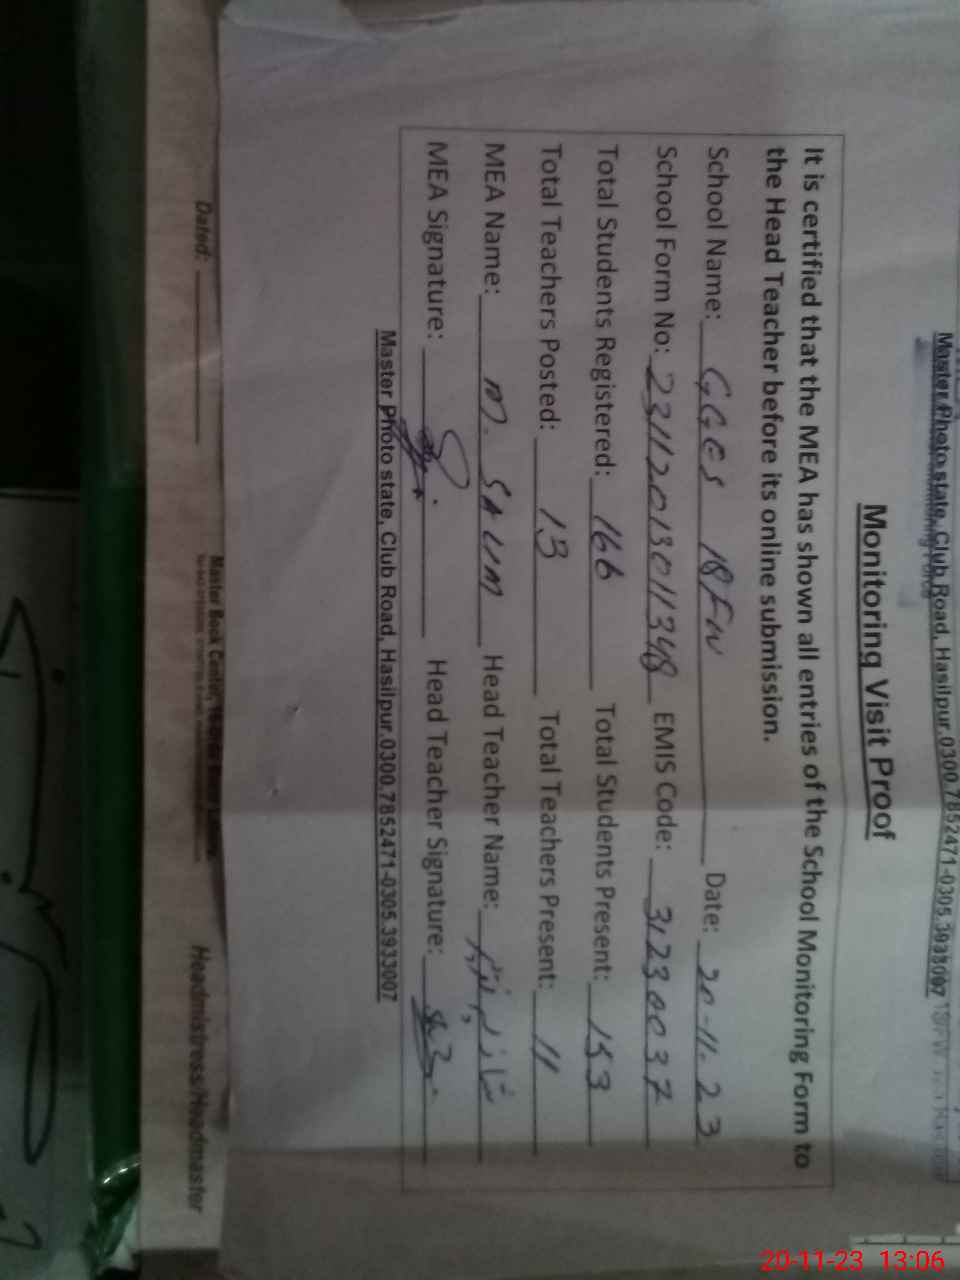 Master Photo state, Club Road, Hasilpur.0300.7852471-0305.3933007
Monitoring Visit Proof
It is certified that the MEA has shown all entries of the School Monitoring Form to
the Head Teacher before its online submission.
School Name: GGES 18FW Date: 20-11-23
School Form No: 23112013011348 EMIS Code: 31230037
Total Students Registered: 166 Total Students Present: 153
Total Teachers Posted: 13 Total Teachers Present: 11
MEA Name: M. SALIM Head Teacher Name:
MEA Signature: Head Teacher Signature:
Master Photo state, Club Road, Hasilpur.0300.7852471-0305.3933007
Dated: Headmistress/Headmaster
Master Book Center,
20-11-23 13:06